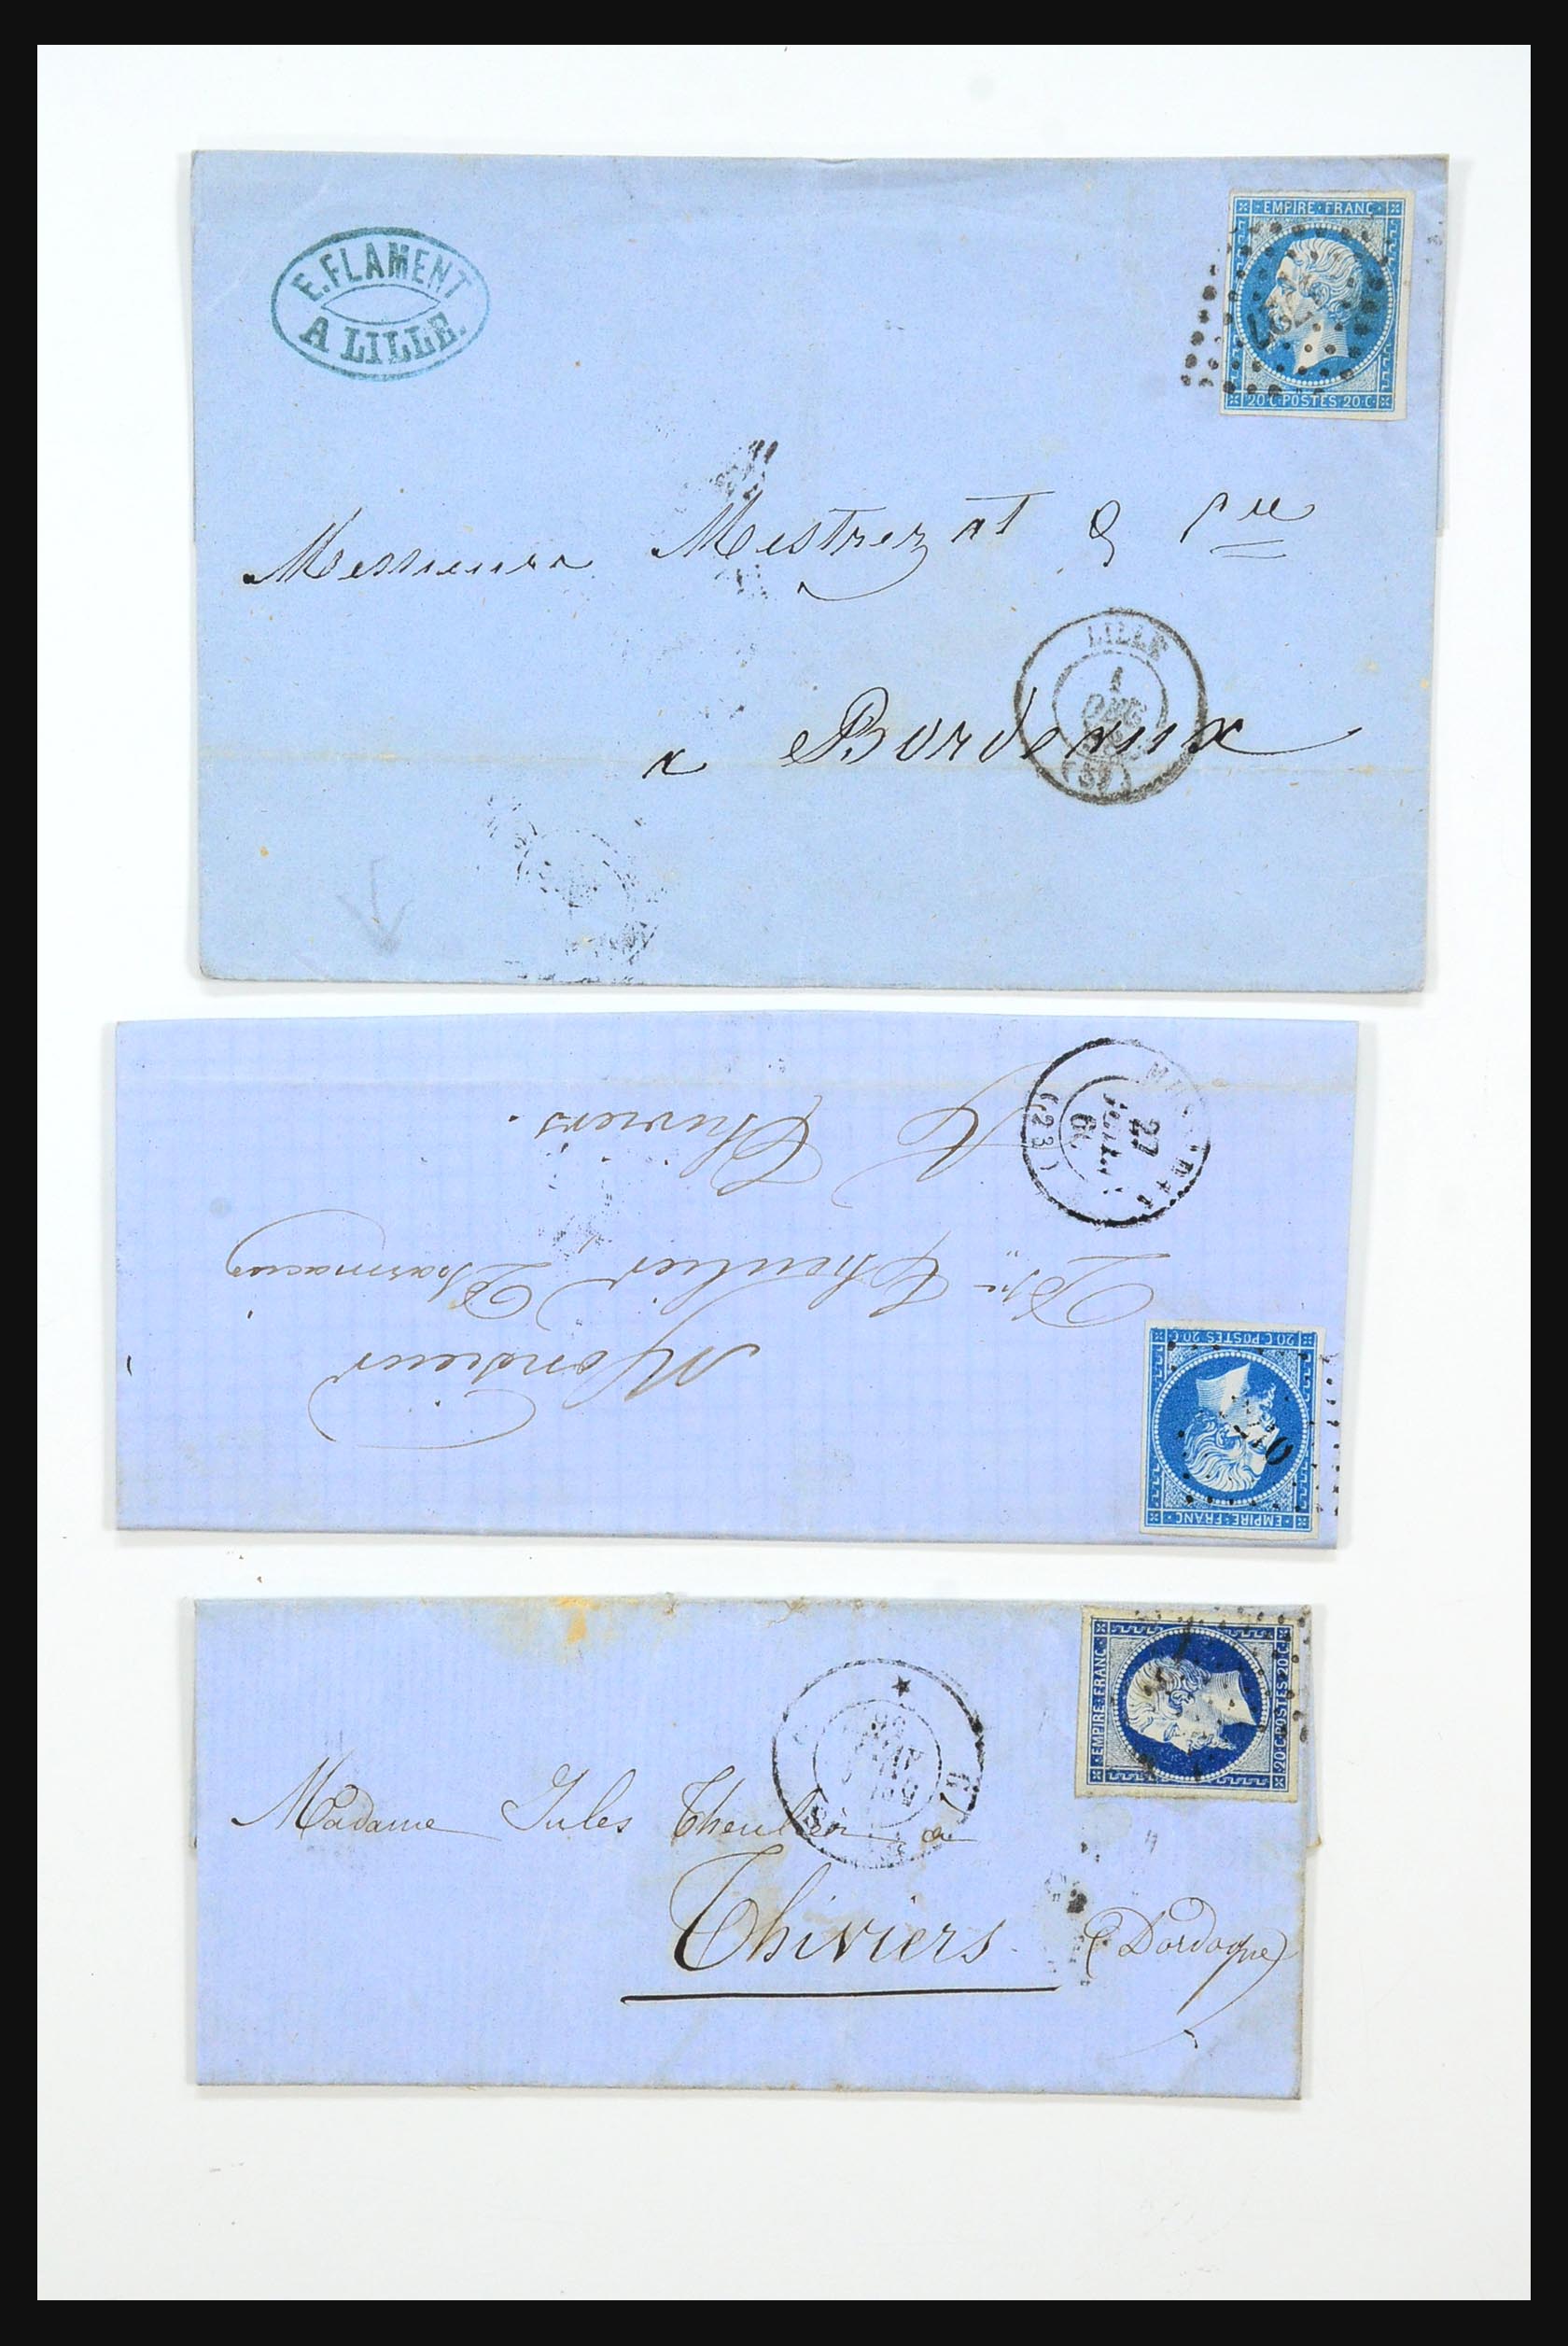 E. FLAMENT
A LILLE.
EMPIRE · FRANC
20 · C · POSTES · 20 · C
Messieurs Mestrezat & Cie
LILLE
1
(57)
a Bordeaux
Monsieur
Theulier Pharmacien
A Thiviers.
27
(23)
EMPIRE · FRANC
20 · C · POSTES · 20 · C
EMPIRE · FRANC
20 · C · POSTES · 20 · C
Madame Jules Theulier a
Thiviers (Dordogne)